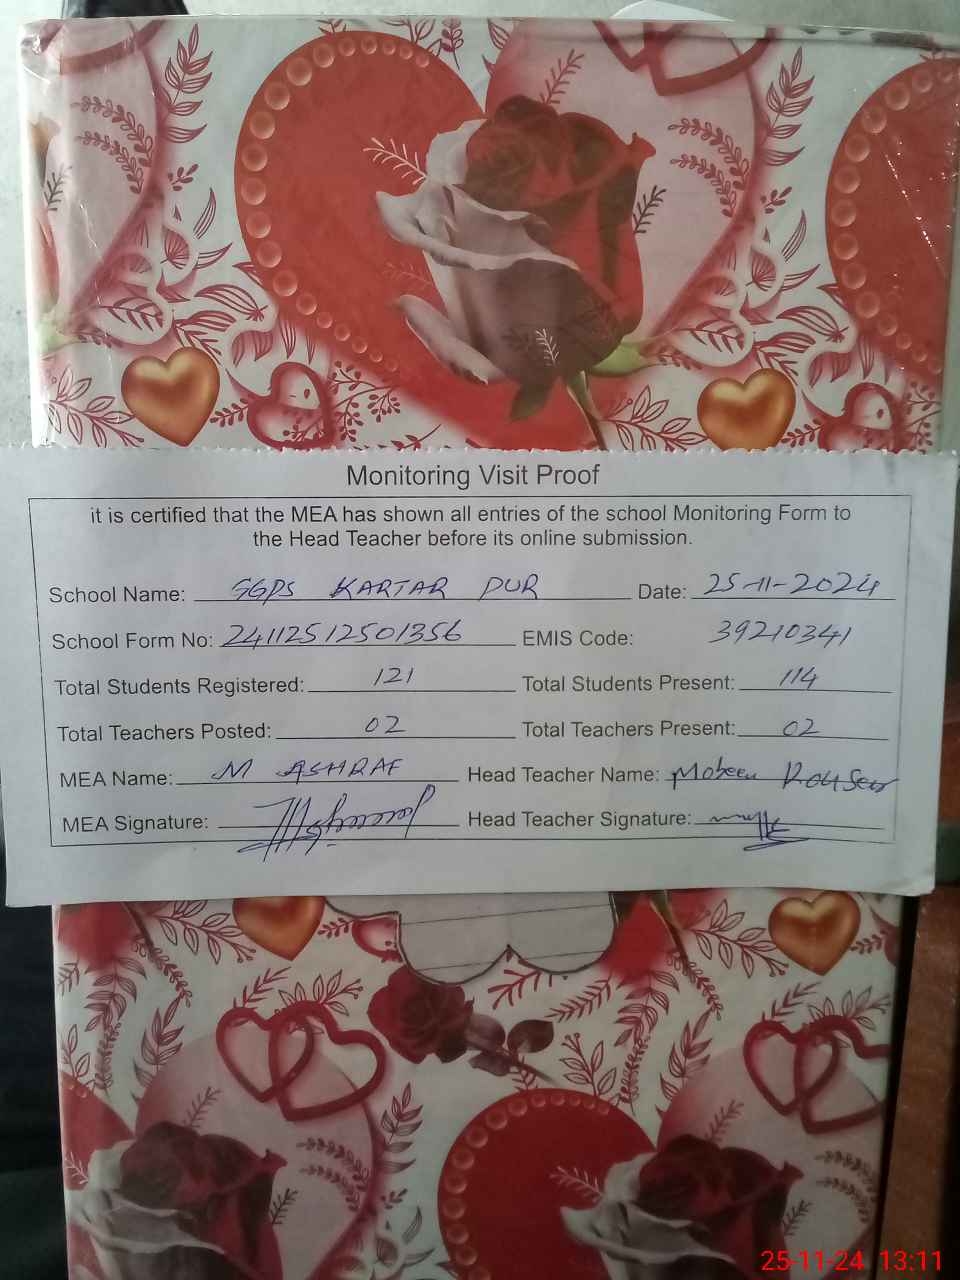 Monitoring Visit Proof
it is certified that the MEA has shown all entries of the school Monitoring Form to
the Head Teacher before its online submission.
School Name: GGPS KARTAR PUR Date: 25-11-2024
School Form No: 24112512501356 EMIS Code: 39210341
Total Students Registered: 121 Total Students Present: 114
Total Teachers Posted: 02 Total Teachers Present: 02
MEA Name: M ASHRAF Head Teacher Name: Mobeen
MEA Signature: Head Teacher Signature:
25-11-24 13:11